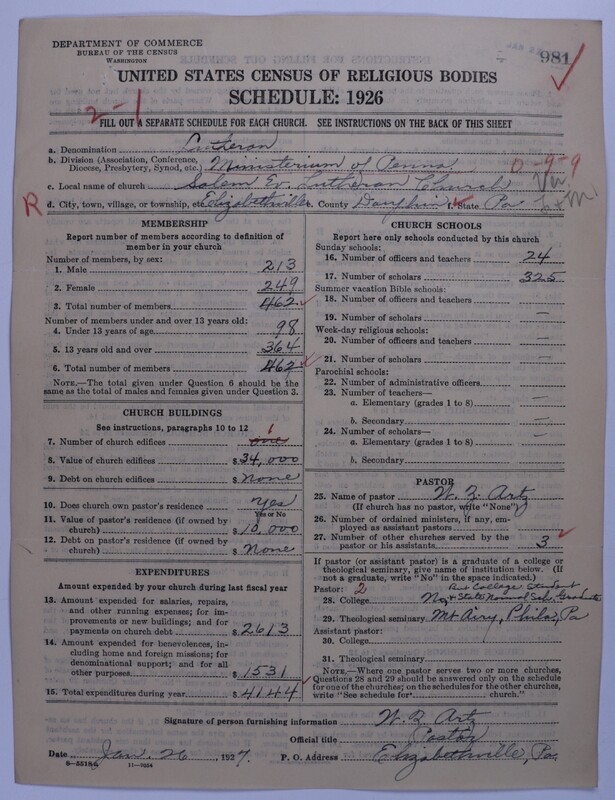 DEPARTMENT OF COMMERCE
BUREAU OF THE CENSUS
WASHINGTON
981
UNITED STATES CENSUS OF RELIGIOUS BODIES
SCHEDULE: 1926
2-1
FILL OUT A SEPARATE SCHEDULE FOR EACH CHURCH. SEE INSTRUCTIONS ON THE BACK OF THIS SHEET
a. Denomination Lutheran
b. Division (Association, Conference, Diocese, Presbytery, Synod, etc.) Ministerium of Penna 0-9-9
c. Local name of church Salem Ev. Lutheran Church
R d. City, town, village, or township, etc. Elizabethville e. County Dauphin f. State Pa
MEMBERSHIP
Report number of members according to definition of member in your church
Number of members, by sex:
1. Male 213
2. Female 249
3. Total number of members 462
Number of members under and over 13 years old:
4. Under 13 years of age 98
5. 13 years old and over 364
6. Total number of members 462
NOTE.—The total given under Question 6 should be the same as the total of males and females given under Question 3.
CHURCH BUILDINGS
See instructions, paragraphs 10 to 12
7. Number of church edifices one 1
8. Value of church edifices $ 34,000
9. Debt on church edifices $ None
10. Does church own pastor's residence Yes
Yes or No
11. Value of pastor's residence (if owned by church) $ 10,000
12. Debt on pastor's residence (if owned by church) $ None
EXPENDITURES
Amount expended by your church during last fiscal year
13. Amount expended for salaries, repairs, and other running expenses; for improvements or new buildings; and for payments on church debt $ 2613
14. Amount expended for benevolences, including home and foreign missions; for denominational support; and for all other purposes $ 1531
15. Total expenditures during year $ 4144
CHURCH SCHOOLS
Report here only schools conducted by this church
Sunday schools:
16. Number of officers and teachers 24
17. Number of scholars 325
Summer vacation Bible schools:
18. Number of officers and teachers —
19. Number of scholars —
Week-day religious schools:
20. Number of officers and teachers —
21. Number of scholars —
Parochial schools:
22. Number of administrative officers —
23. Number of teachers—
a. Elementary (grades 1 to 8) —
b. Secondary —
24. Number of scholars—
a. Elementary (grades 1 to 8) —
b. Secondary —
PASTOR
25. Name of pastor W. Z. Artz
(If church has no pastor, write "None")
26. Number of ordained ministers, if any, employed as assistant pastors
27. Number of other churches served by the pastor or his assistants 3
If pastor (or assistant pastor) is a graduate of a college or theological seminary, give name of institution below. (If not a graduate, write "No" in the space indicated.)
Pastor: 2 College Student
28. College No & State Normal Sch. Graduate
29. Theological seminary Mt Airy, Phila, Pa
Assistant pastor:
30. College
31. Theological seminary
NOTE.—Where one pastor serves two or more churches, Questions 28 and 29 should be answered only on the schedule for one of the churches; on the schedules for the other churches, write "See schedule for church."
Signature of person furnishing information W. Z. Artz
Official title Pastor
Date Jan. 26, 1927. P. O. Address Elizabethville, Pa.
8-5518b 11-9064